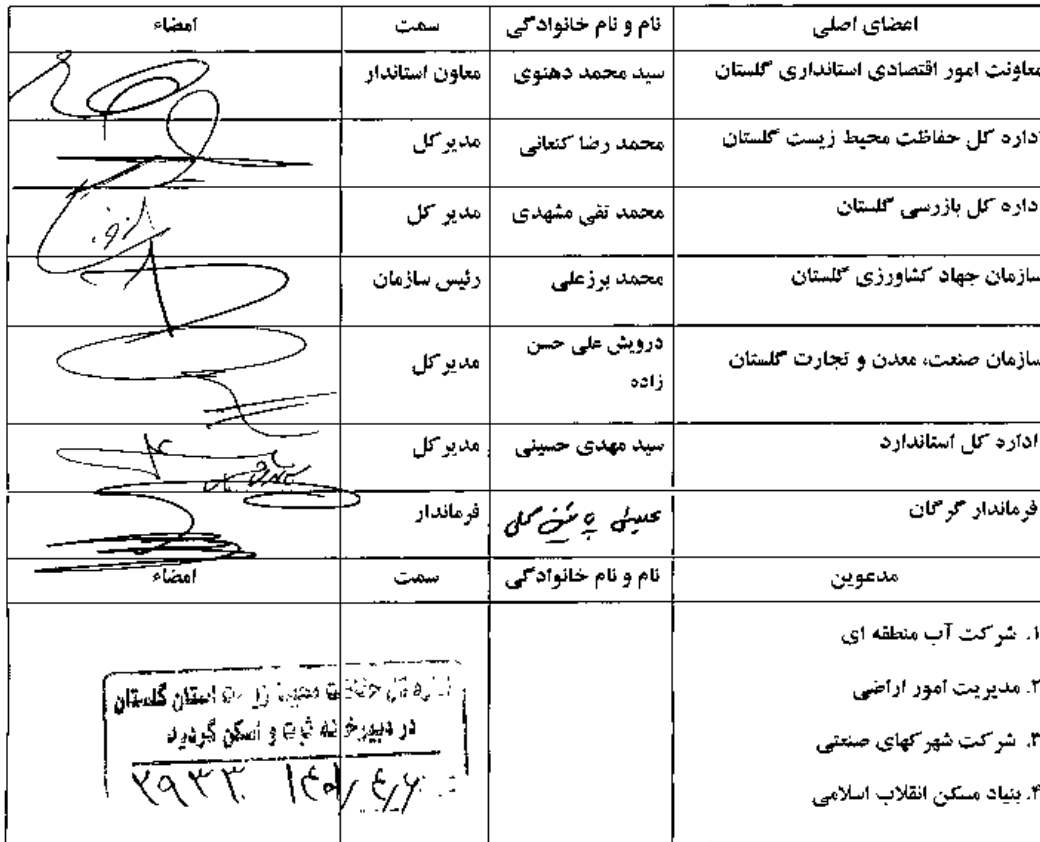 اعضای اصلی نام و نام خانوادگی سمت امضاء
معاونت امور اقتصادی استانداری گلستان سید محمد دهنوی معاون استاندار
اداره کل حفاظت محیط زیست گلستان محمد رضا کنعانی مدیر کل
اداره کل بازرسی گلستان محمد تقی مشهدی مدیر کل
سازمان جهاد کشاورزی گلستان محمد برزعلی رئیس سازمان
سازمان صنعت، معدن و تجارت گلستان درویش علی حسن مدیر کل
زاده
اداره کل استاندارد سید مهدی حسینی مدیر کل
فرماندار گرگان فرماندار
مدعوین نام و نام خانوادگی سمت امضاء
۱. شرکت آب منطقه ای
۲. مدیریت امور اراضی
۳. شرکت شهرکهای صنعتی
۴. بنیاد مسکن انقلاب اسلامی
اداره کل حفاظت محیط زیست استان گلستان
در دبیرخانه ثبت و اسکن گردید
۲۹۳۳